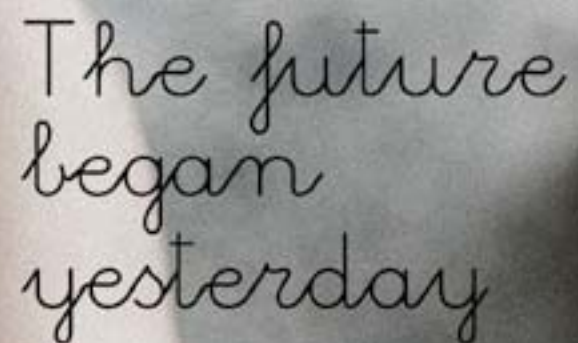 The future
began
yesterday